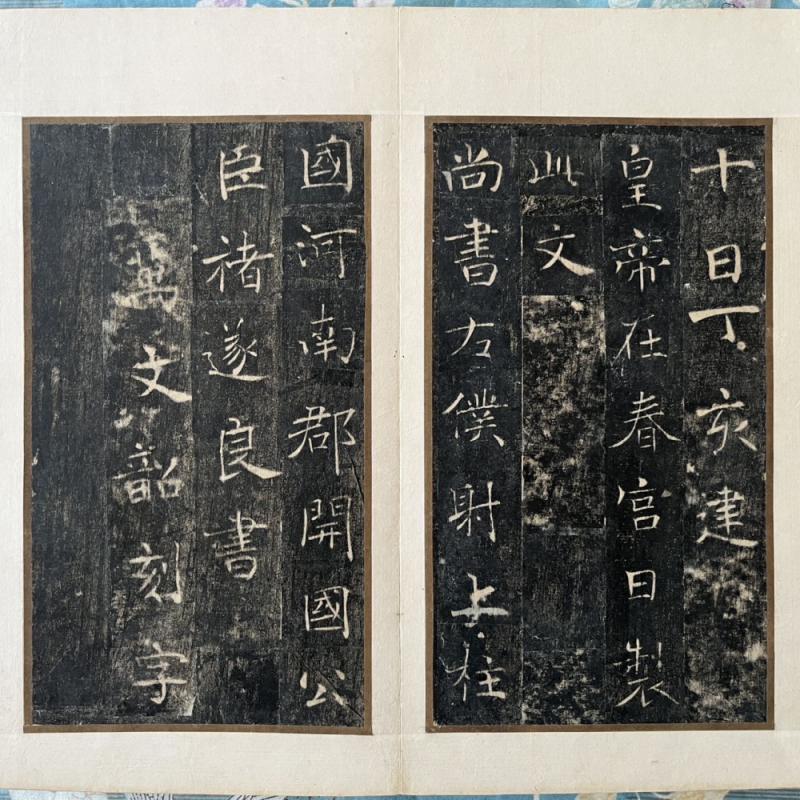 十日丁亥建
皇帝在春宮日製
此文
尚書右僕射上柱
國河南郡開國公
臣褚遂良書
萬文韶刻字